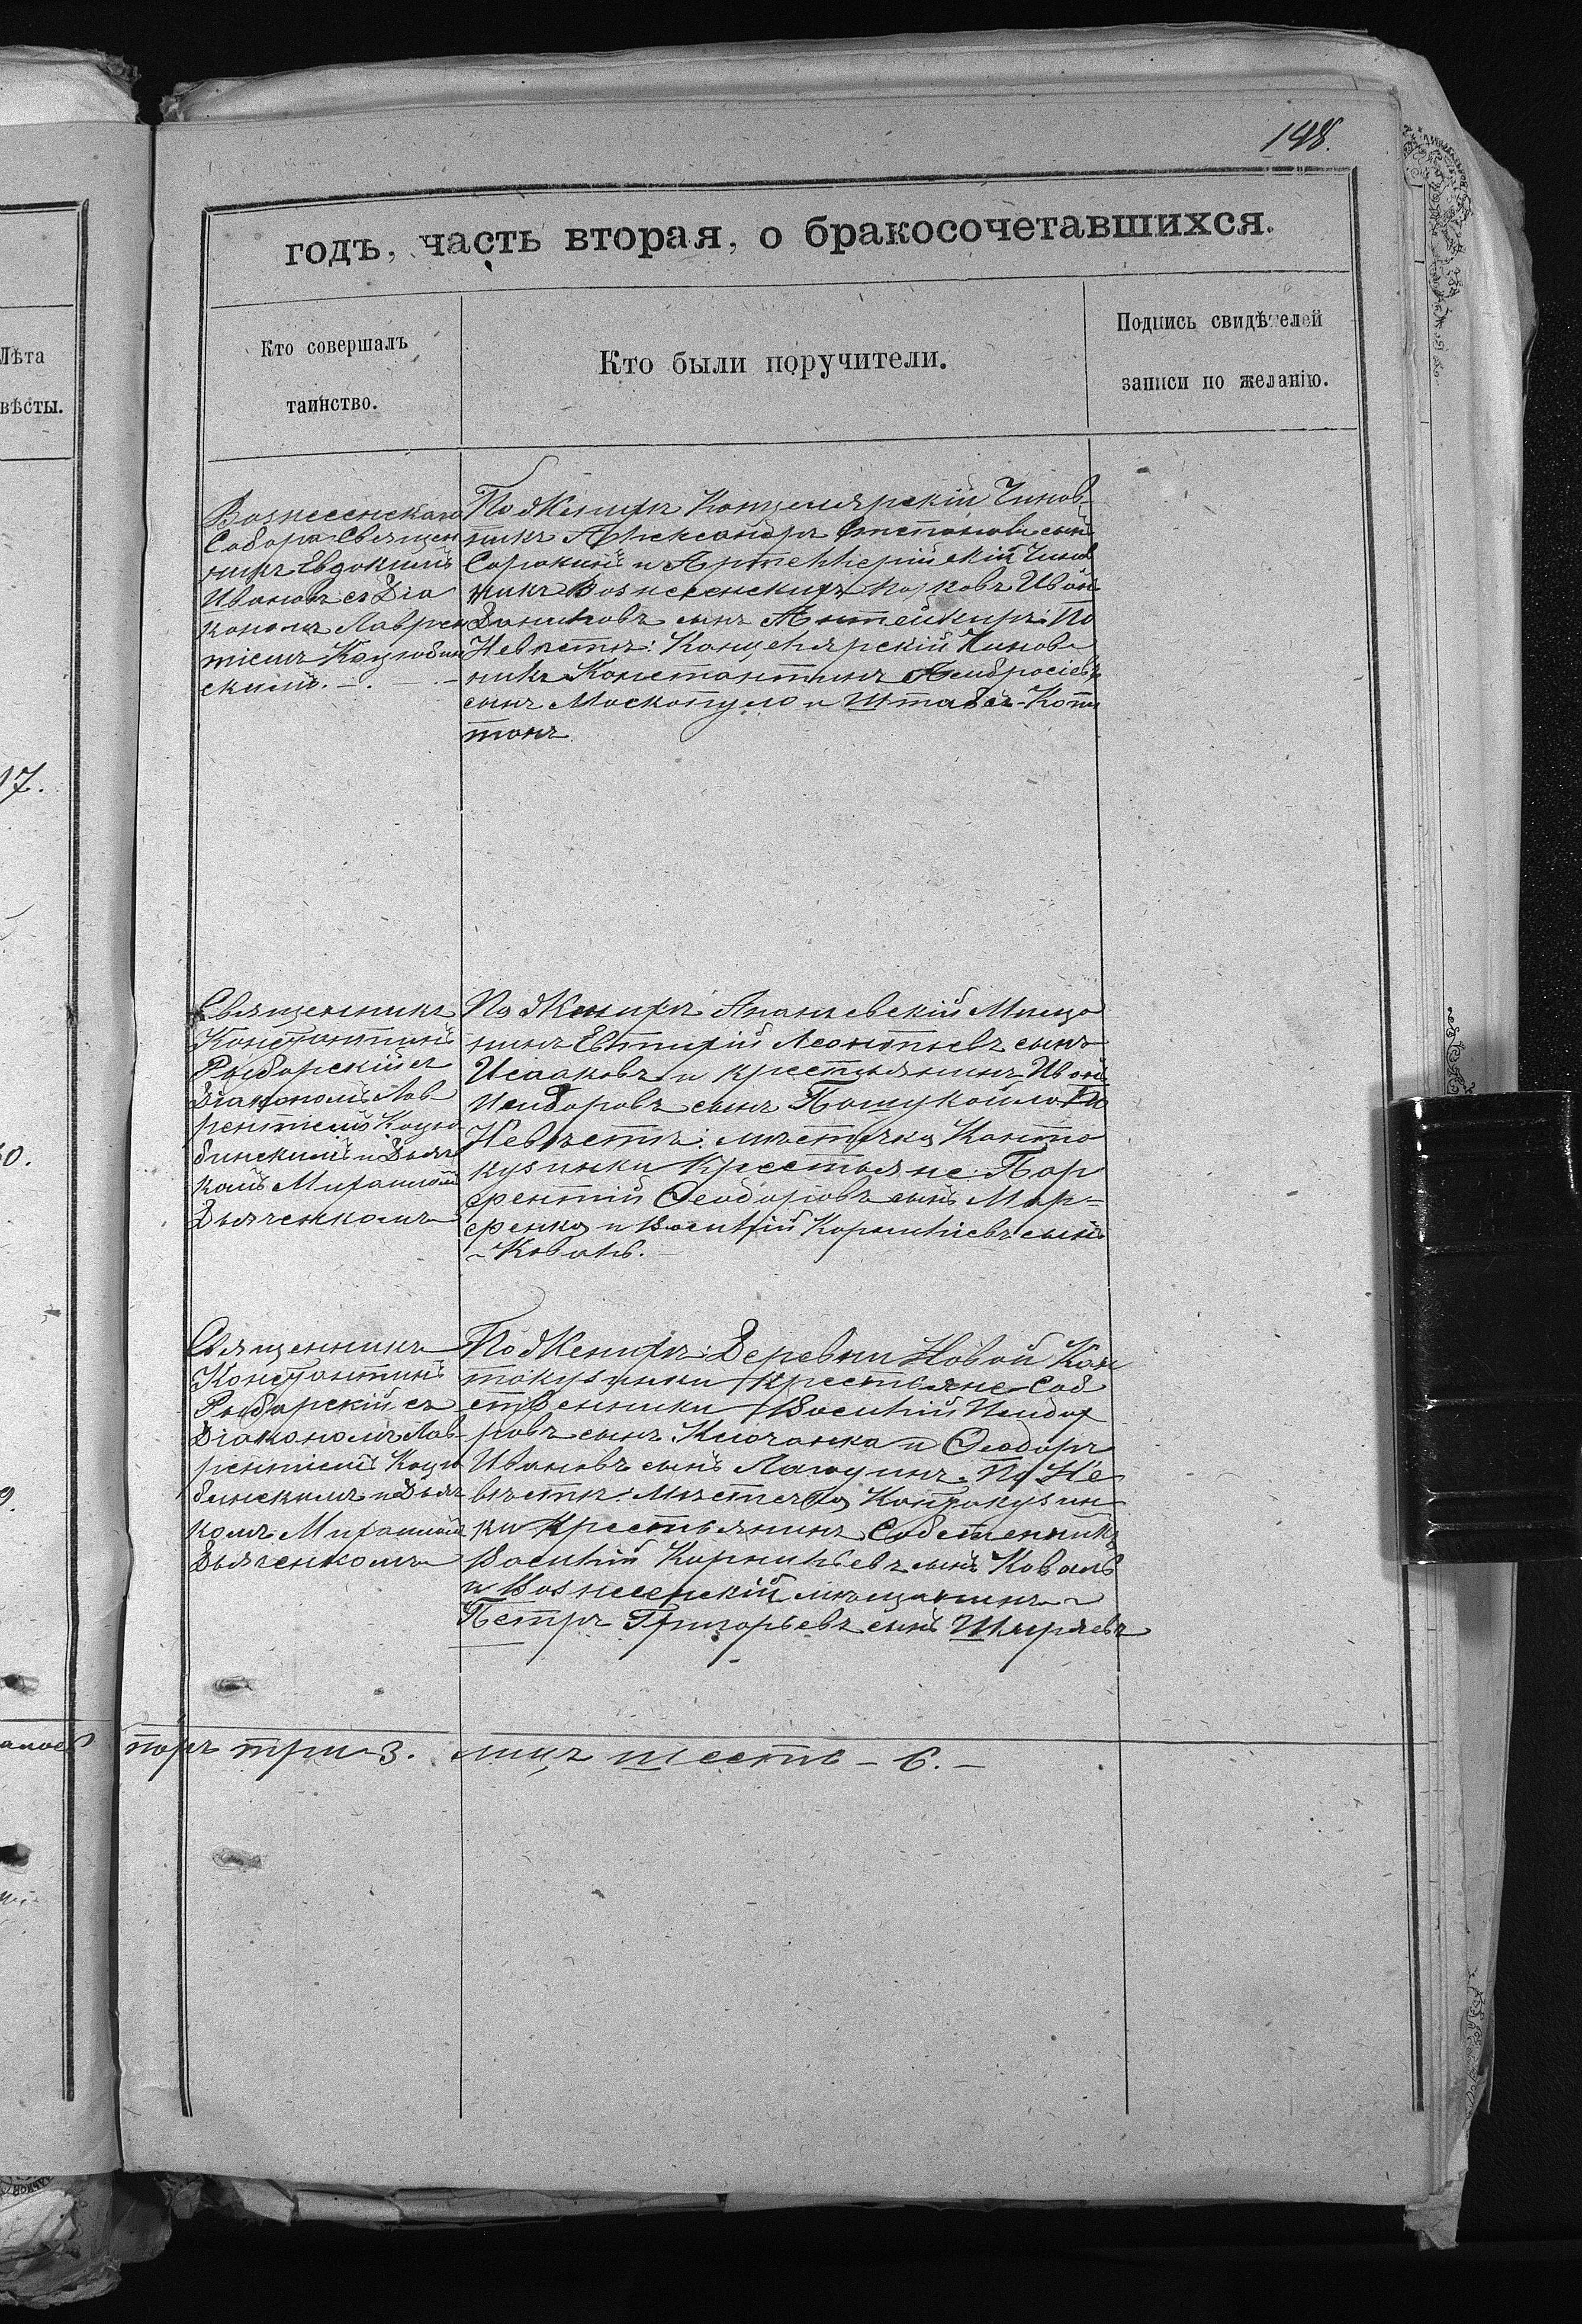 148.
годъ, часть вторая, о бракосочетавшихся.
Лѣта
вѣсты.
Кто совершалъ
таинство.
Кто были поручители.
Подпись свидѣтелей
записи по желанію.
17.
Вознесенскаго
Собора Священ
никъ Евдокимъ
Ивановъ съ Діа
кономъ Лаврен
тіемъ Коцюбин
скимъ.
По Женихѣ Канцелярскій Чинов
никъ Александръ Степановъ сынъ
Сорокинъ и Артеллерійскій Чинов
никъ Вознесенскихъ парковъ Иванъ
Даниловъ сынъ По
Невѣстѣ: Канцелярскій Чинов
никъ Константинъ Амбросіевъ
сынъ Москопуло и Штабсъ-Капи
танъ
Священникъ
Константинъ
Рыбарскій съ
Діакономъ Лав
рентіемъ Коцю
бинскимъ и Дьяч
комъ Митаномъ
Дьяченкомъ
По Женихѣ Ананьевскій Мѣща
нинъ Евтихій Леонтьевъ сынъ
Исааковъ и крестьянинъ Иванъ
Исидоровъ сынъ По
Невѣстѣ: мѣстечка Канта
кузинки Крестьяне Пор
фентій Ѳеодоровъ сынъ Мар=
ченко и Василій Корниліевъ сынъ
Коваль.
Священникъ
Константинъ
Рыбарскій съ
Діакономъ Лав-
рентіемъ Коцю
бинскимъ и Дьяч
комъ Митаномъ
Дьяченкомъ
По Женихѣ: Деревни Новой Кан
такузинки Крестьяне-Соб
ственники Василій Исидо
ровъ сынъ Ключанка и Ѳеодоръ
Ивановъ сынъ По Не
вѣстѣ: Мѣстечка Кантакузин
ки Крестьянинъ Собственникъ
Василій Корнильевъ сынъ Коваль
и Вознесенскій мѣщанинъ
Петръ Григорьевъ сынъ Шкиряевъ
паръ три 3. лицъ шесть - 6. -